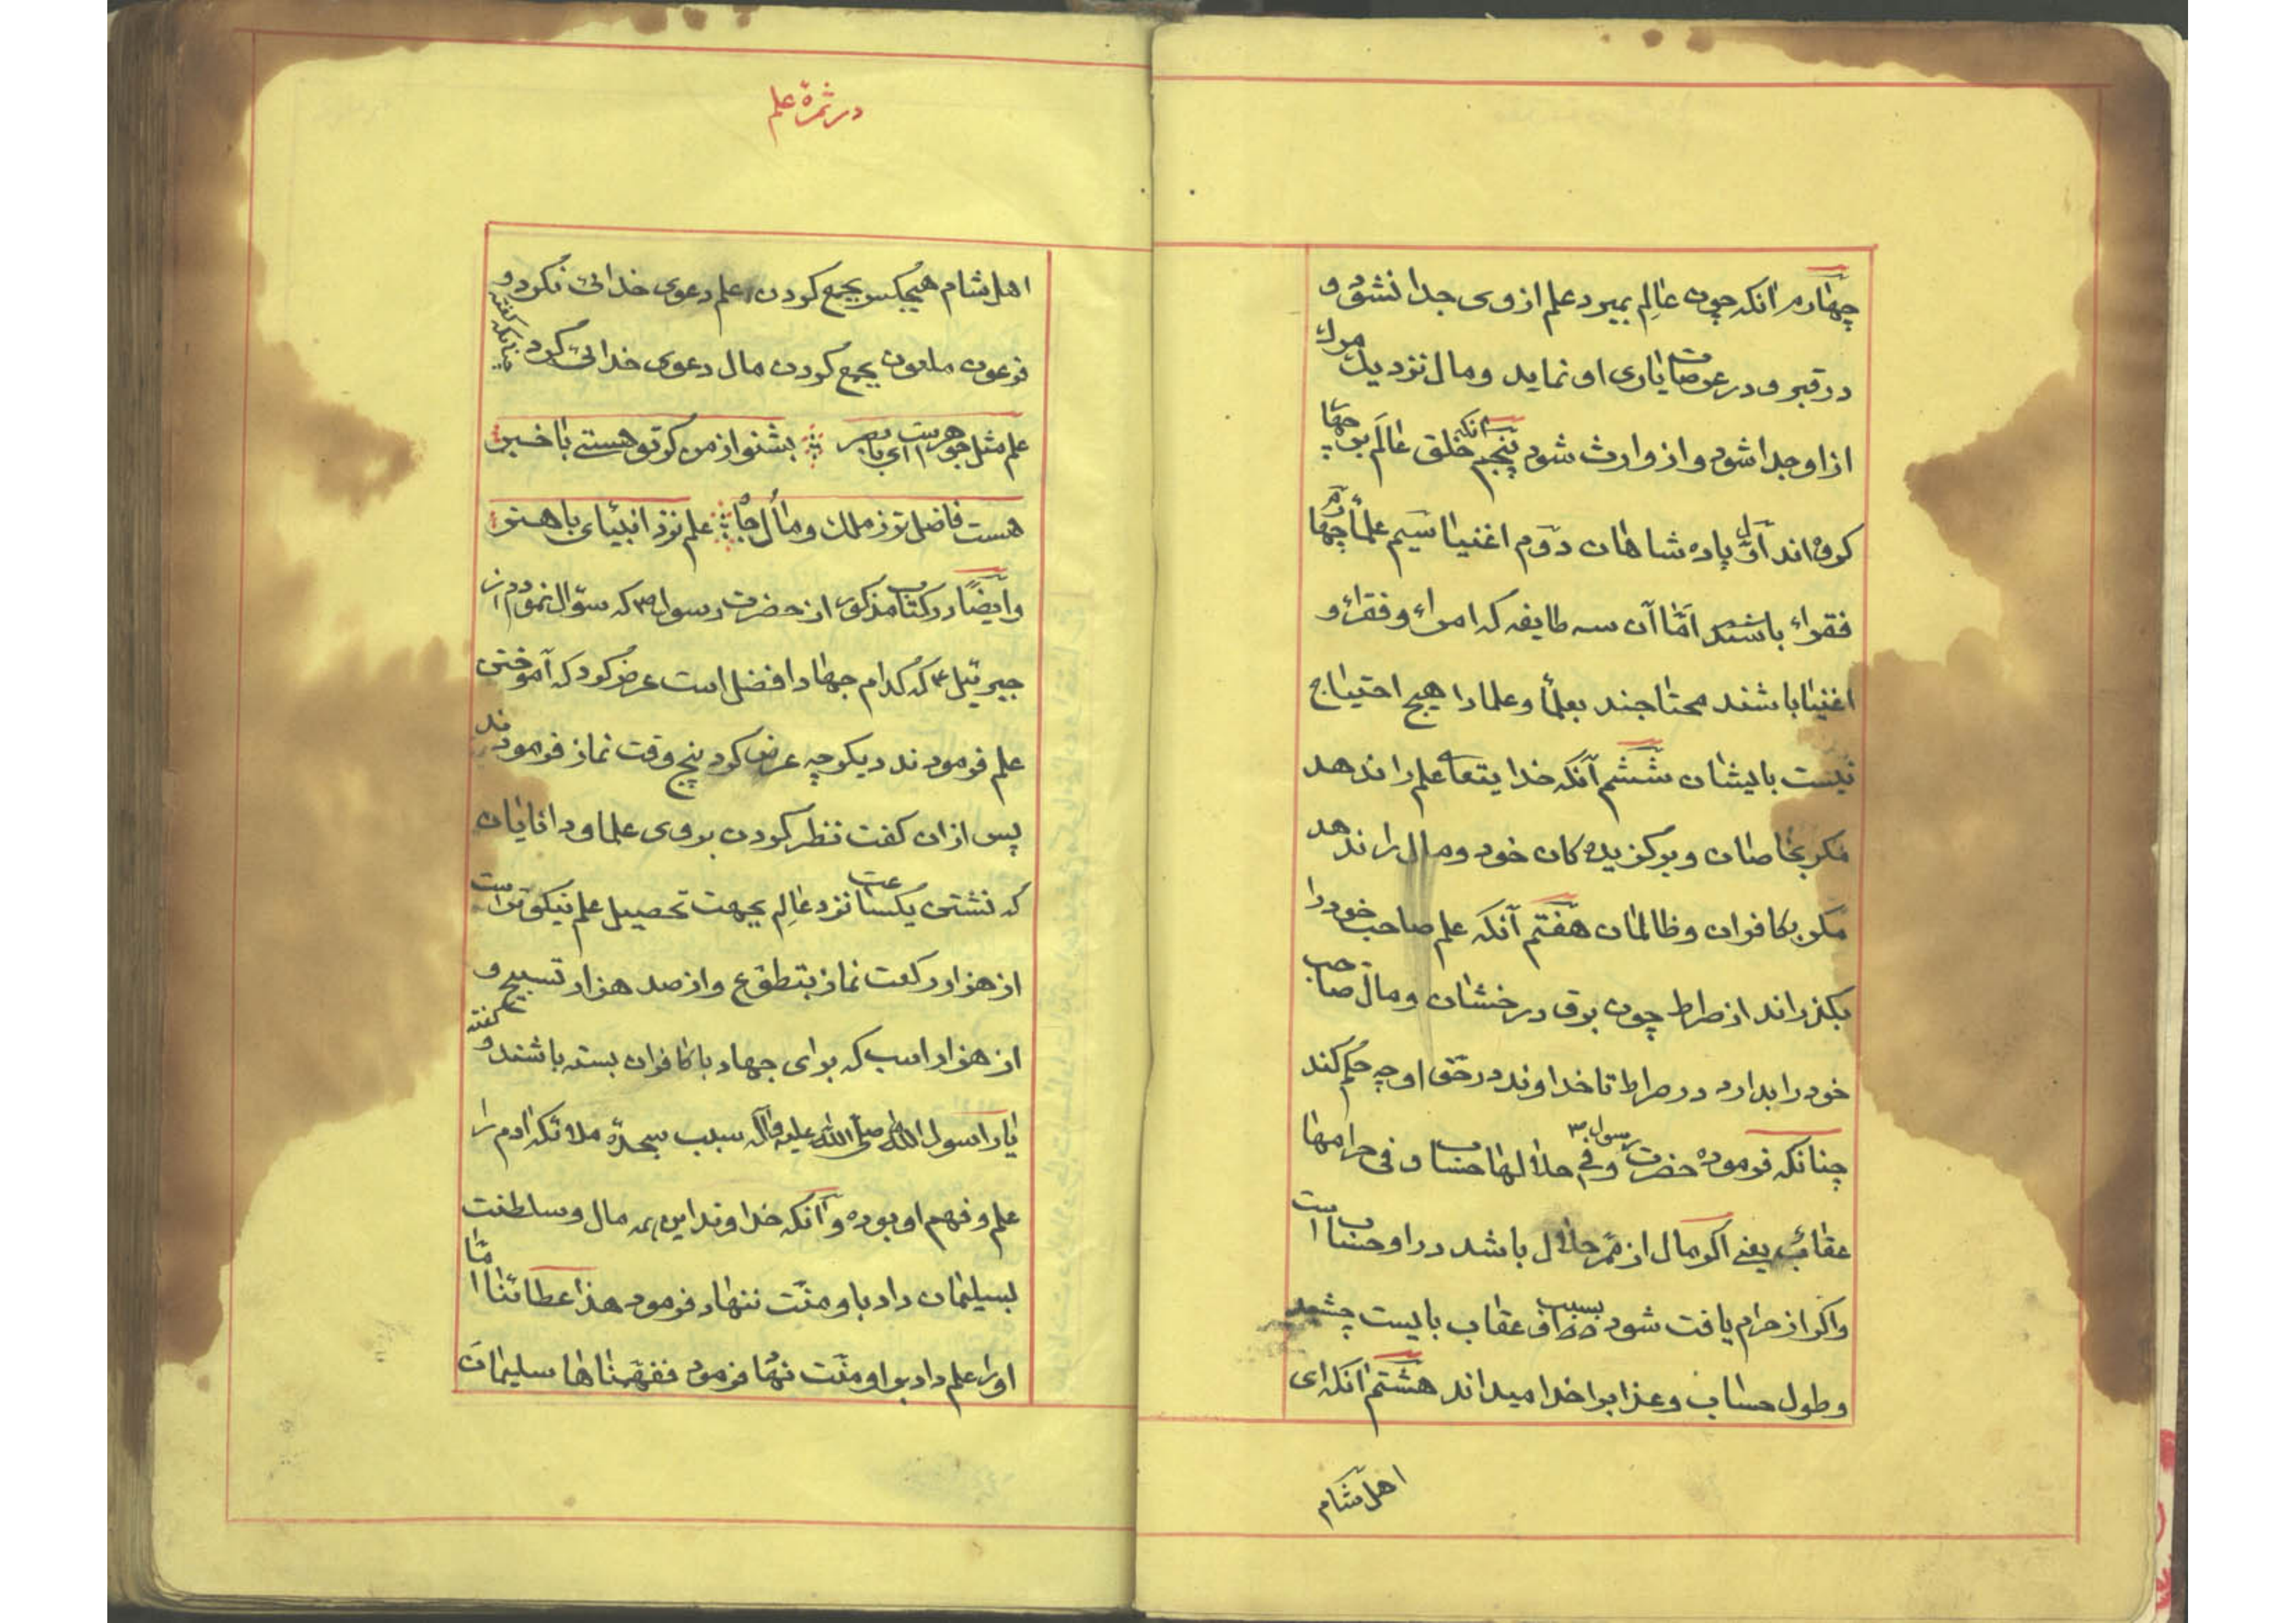 چهارم آنکه چون عالِم بمیرد علم از وی جدا نشود و
در قبر و در عرصات یاری او نماید و مال نزدیک مرک
از او جدا شود و از وارث شود پنجم آنکه خلق عالَم بر چهار
کروه اند اوّل پادشاهان دوّم اغنیا سیم علما چهارم
فقراء باشند امّا آن سه طایفه که امراء و فقراء و
اغنیا باشند محتاجند بعلما و علما را هیچ احتیاج
نیست بایشان ششم آنکه خدایتعا علم را ندهد
مکر بخاصان و برکزیده کان خود و مال را ندهد
مکر بکافران و ظالمان هفتم آنکه علم صاحب خود را
بکذراند از صراط چون برق درخشان و مال صاحب
خود را بدارد در صراط تا خداوند در حق او چه حکم کند
چنانکه فرموده حضرت رسول ص وفی حلالها حساب و فی حرامها
عقاب یعنے اکر مال از ممرّ حلال باشد در او حساب است
و اکر از حرام یافت شود بسبب عقاب بایست چشید
و طول حساب و عذابرا خدا میداند هشتم آنکه ای
اهل شام
در ثمرۀ علم
اهل شام هیچکس بجمع کردن علم دعوی خدائی نکرد و
فرعون ملعون بجمع کردن مال دعوی خدائی کرد چنانکه کفته
علم مثل جوهر است ای با بصر بشنو از من کر تو هستے با خبر
هست فاضل تر ز ملک و مال جاه علم نزد انبیای با هنر
و ایضًا در کتاب مذکور از حضرت رسول ص که سؤال نمودم از
جبرئیل ع که کدام جهاد افضل است عرض کرد که آموختن
علم فرمودند دیکر چه عرض کرد پنج وقت نماز فرمودند
پس از ان کفت نظر کردن بروی علما و دانایان
که نشتن یکساعت نزد عالِم بجهت تحصیل علم نیکوتر است
از هزار رکعت نماز بتطوّع و از صد هزار تسبیح و
از هزار اسب که برای جهاد با کافران بسته باشند و کفته
یا رسول الله صلّی الله علیه و آله سبب سجدۀ ملائکه ادم را
علم و فهم او بوده و آنکه خداوند این همه مال و سلطنت
بسلیمان داد باو منّت ننهاد فرمود هذا عطائنا امّا
اورا علم داد بر او منّت نهاد فرمود ففهّمناها سلیمانَ